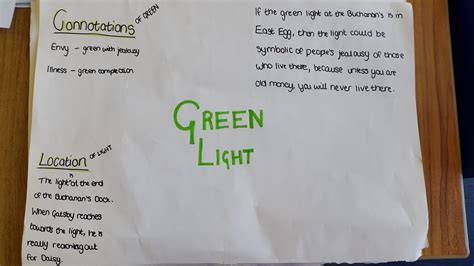 Connotations OF GREEN
Envy – green with jealousy
Illness – green complexion
If the green light at the Buchanan's is in
East Egg, then the light could be
symbolic of people's jealousy of those
who live there, because unless you are
old money, you will never live there.
GREEN
LIGHT
Location OF LIGHT
The light is at the end
of the Buchanan's Dock.
When Gatsby reaches
towards the light, he is
really reaching out
for Daisy.